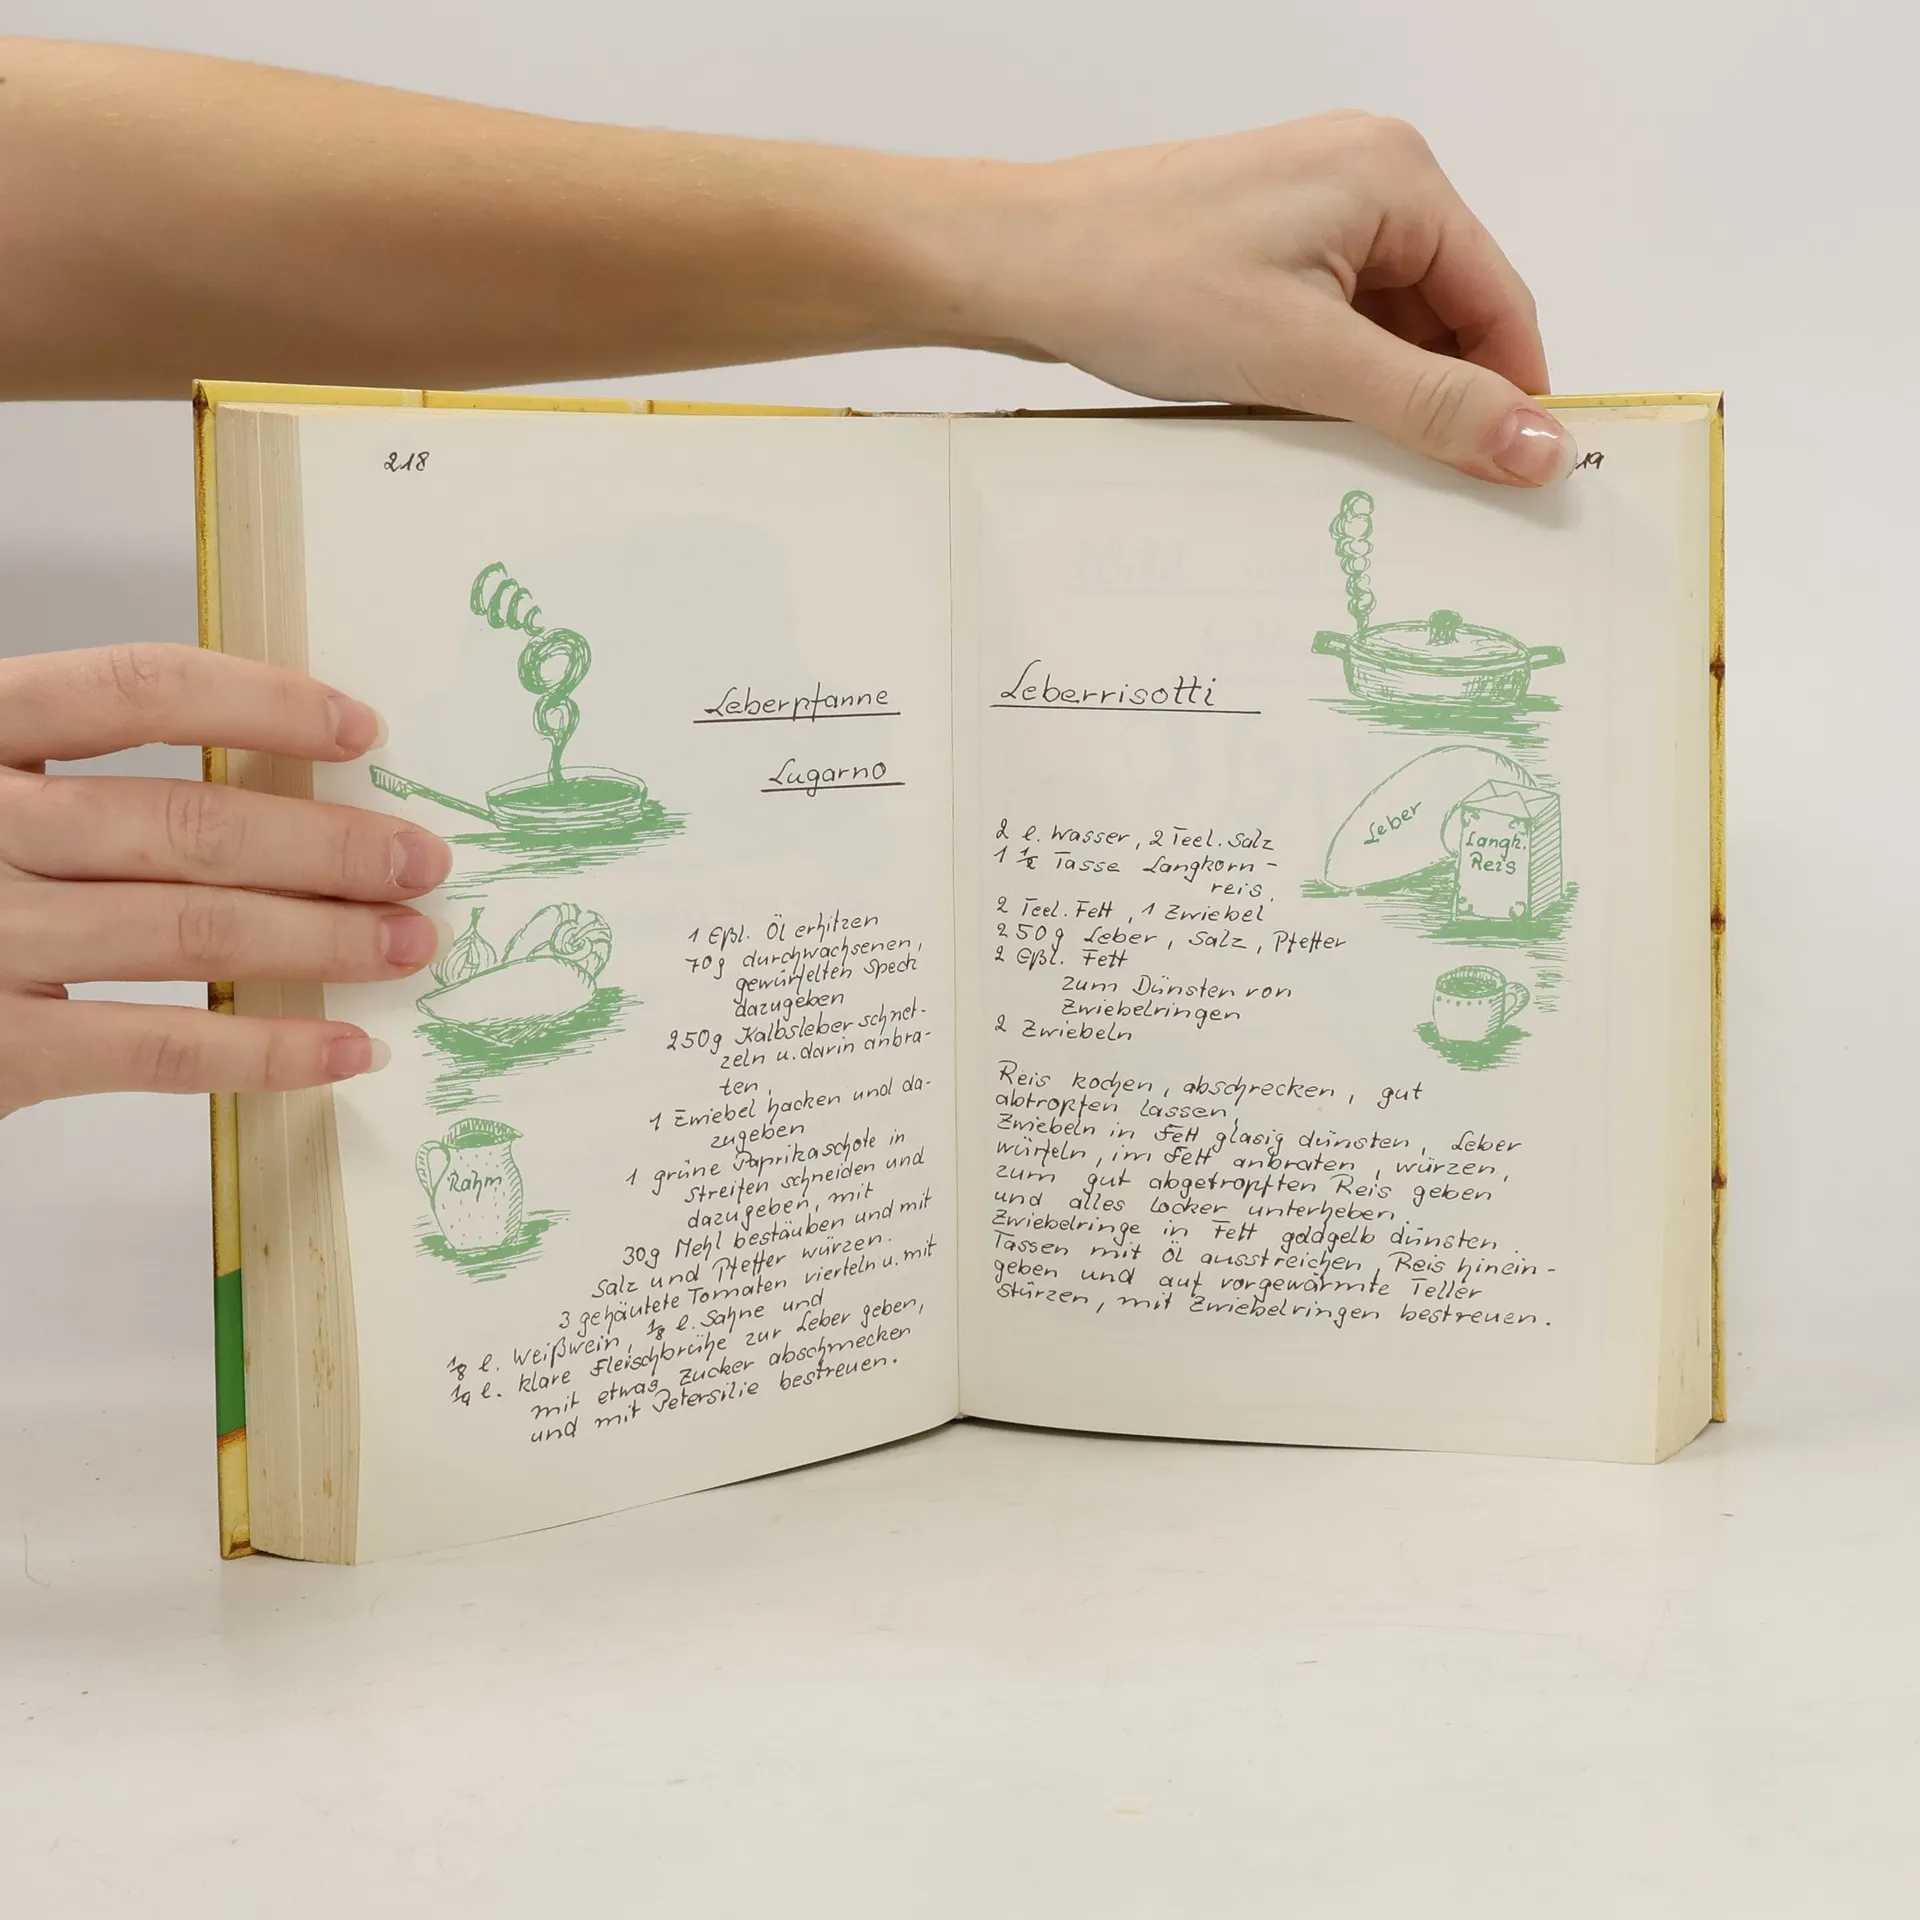 218
Leberpfanne
Lugarno
1 Eßl. Öl erhitzen
70g durchwachsenen,
gewürfelten Speck
dazugeben
250g Kalbsleber schnet-
zeln u. darin anbra-
ten,
1 Zwiebel hacken und da-
zugeben
1 grüne Paprikaschote in
Streifen schneiden und
dazugeben, mit
30g Mehl bestäuben und mit
Salz und Pfeffer würzen.
3 gehäutete Tomaten vierteln u. mit
1/8 l. Weißwein, 1/8 l. Sahne und
1/4 l. klare Fleischbrühe zur Leber geben,
mit etwas Zucker abschmecken
und mit Petersilie bestreuen.
Rahm
19
Leberrisotti
2 l. Wasser, 2 Teel. Salz
1 1/2 Tasse Langkorn-
reis,
2 Teel. Fett, 1 Zwiebel
250g Leber, Salz, Pfeffer
2 Eßl. Fett
zum Dünsten von
Zwiebelringen
2 Zwiebeln
Leber
Langk.
Reis
Reis kochen, abschrecken, gut
abtropfen lassen,
Zwiebeln in Fett glasig dünsten, Leber
würfeln, im Fett anbraten, würzen,
zum gut abgetropften Reis geben
und alles locker unterheben.
Zwiebelringe in Fett goldgelb dünsten.
Tassen mit Öl ausstreichen, Reis hinein-
geben und auf vorgewärmte Teller
stürzen, mit Zwiebelringen bestreuen.